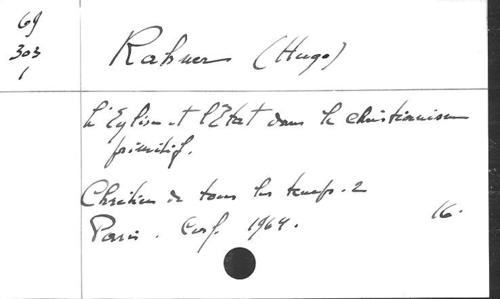 69
303
1
Rahner (Hugo)
L'Eglise et l'Etat dans le christianisme
primitif.
Chrétiens de tous les temps. 2
Paris. Cerf. 1964. 16.